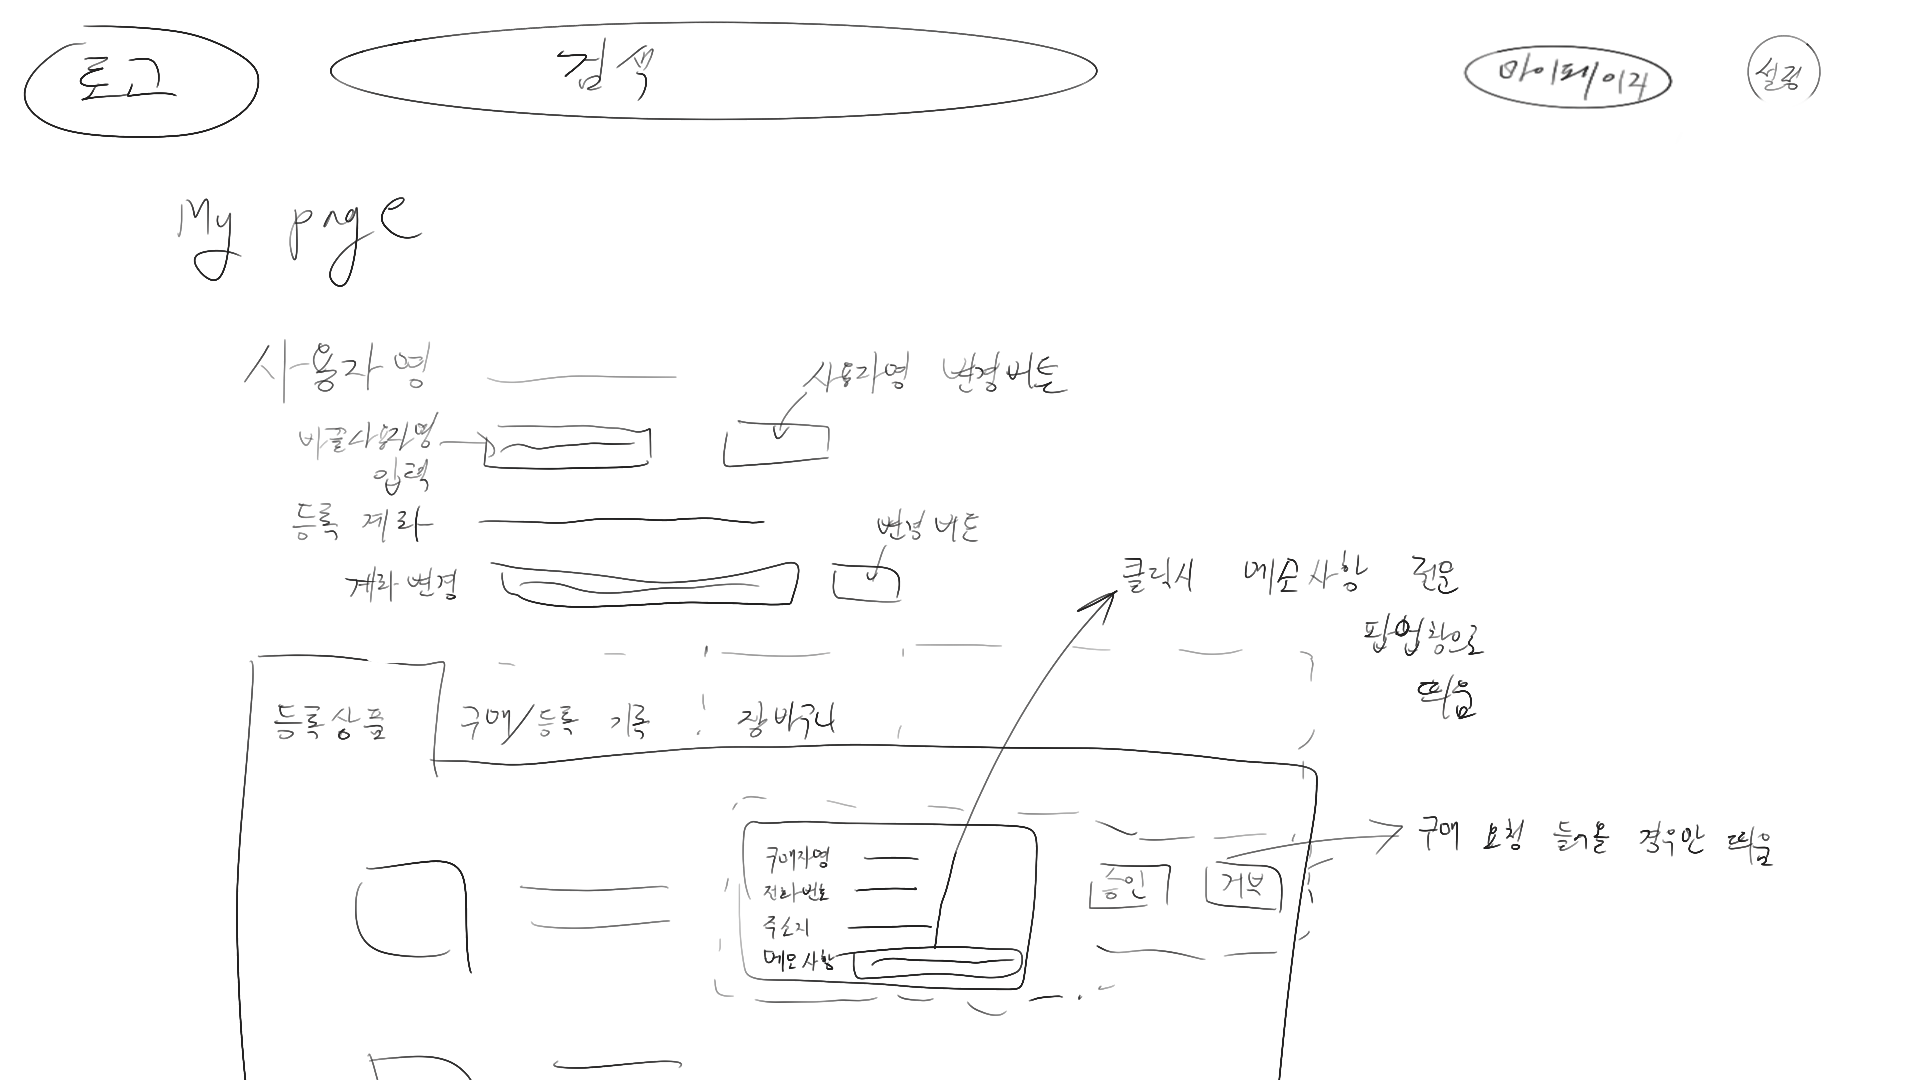 로고
검색
마이페이지
설정
My page
사용자명
사용자명 변경버튼
바꿀사용자명
입력
등록 계좌
변경 버튼
계좌변경
클릭시 메모사항 전문
팝업창으로
띄움
등록상품
구매/등록 기록
장바구니
구매자명
전화번호
주소지
메모사항
승인
거부
구매 요청 들어올 경우만 띄움